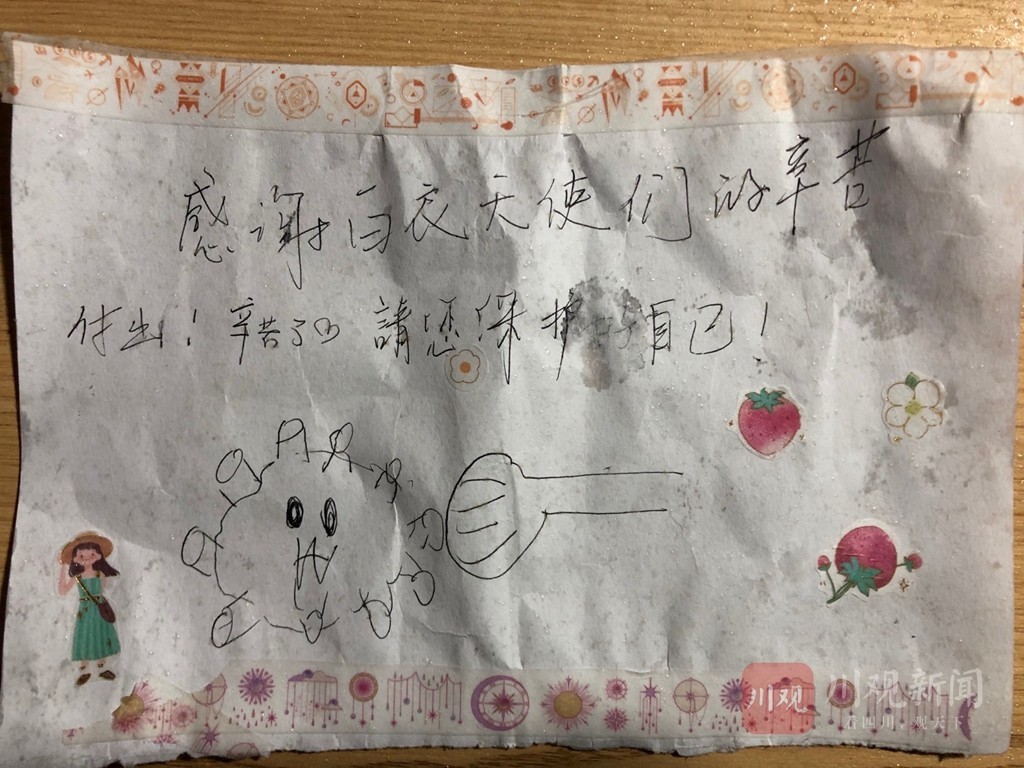 感谢白衣天使们的辛苦
付出！辛苦了 請您保护好自己！
川观
川观新闻
看四川 观天下